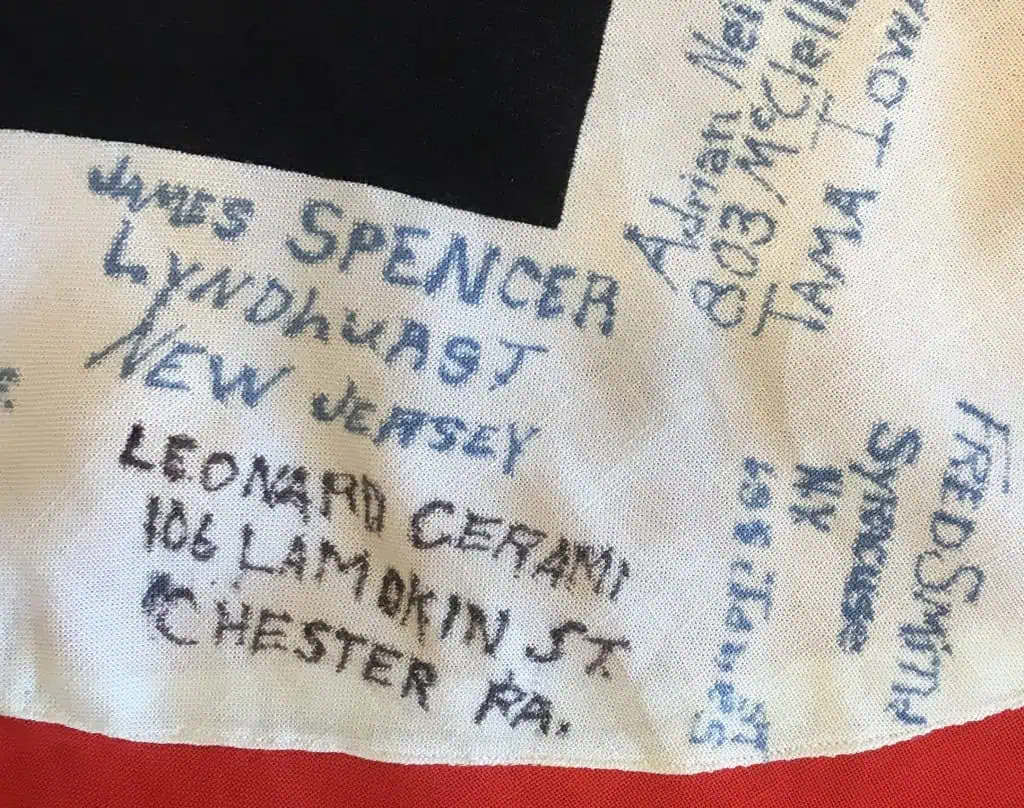 JAMES SPENCER
LYNDhuRST
NEW JERSEY
LEONARD CERAMI
106 LAMOKIN ST.
CHESTER PA.
Adrian
803 McClell
TAMA IOWA
FRED SMITH
SYRACUSE